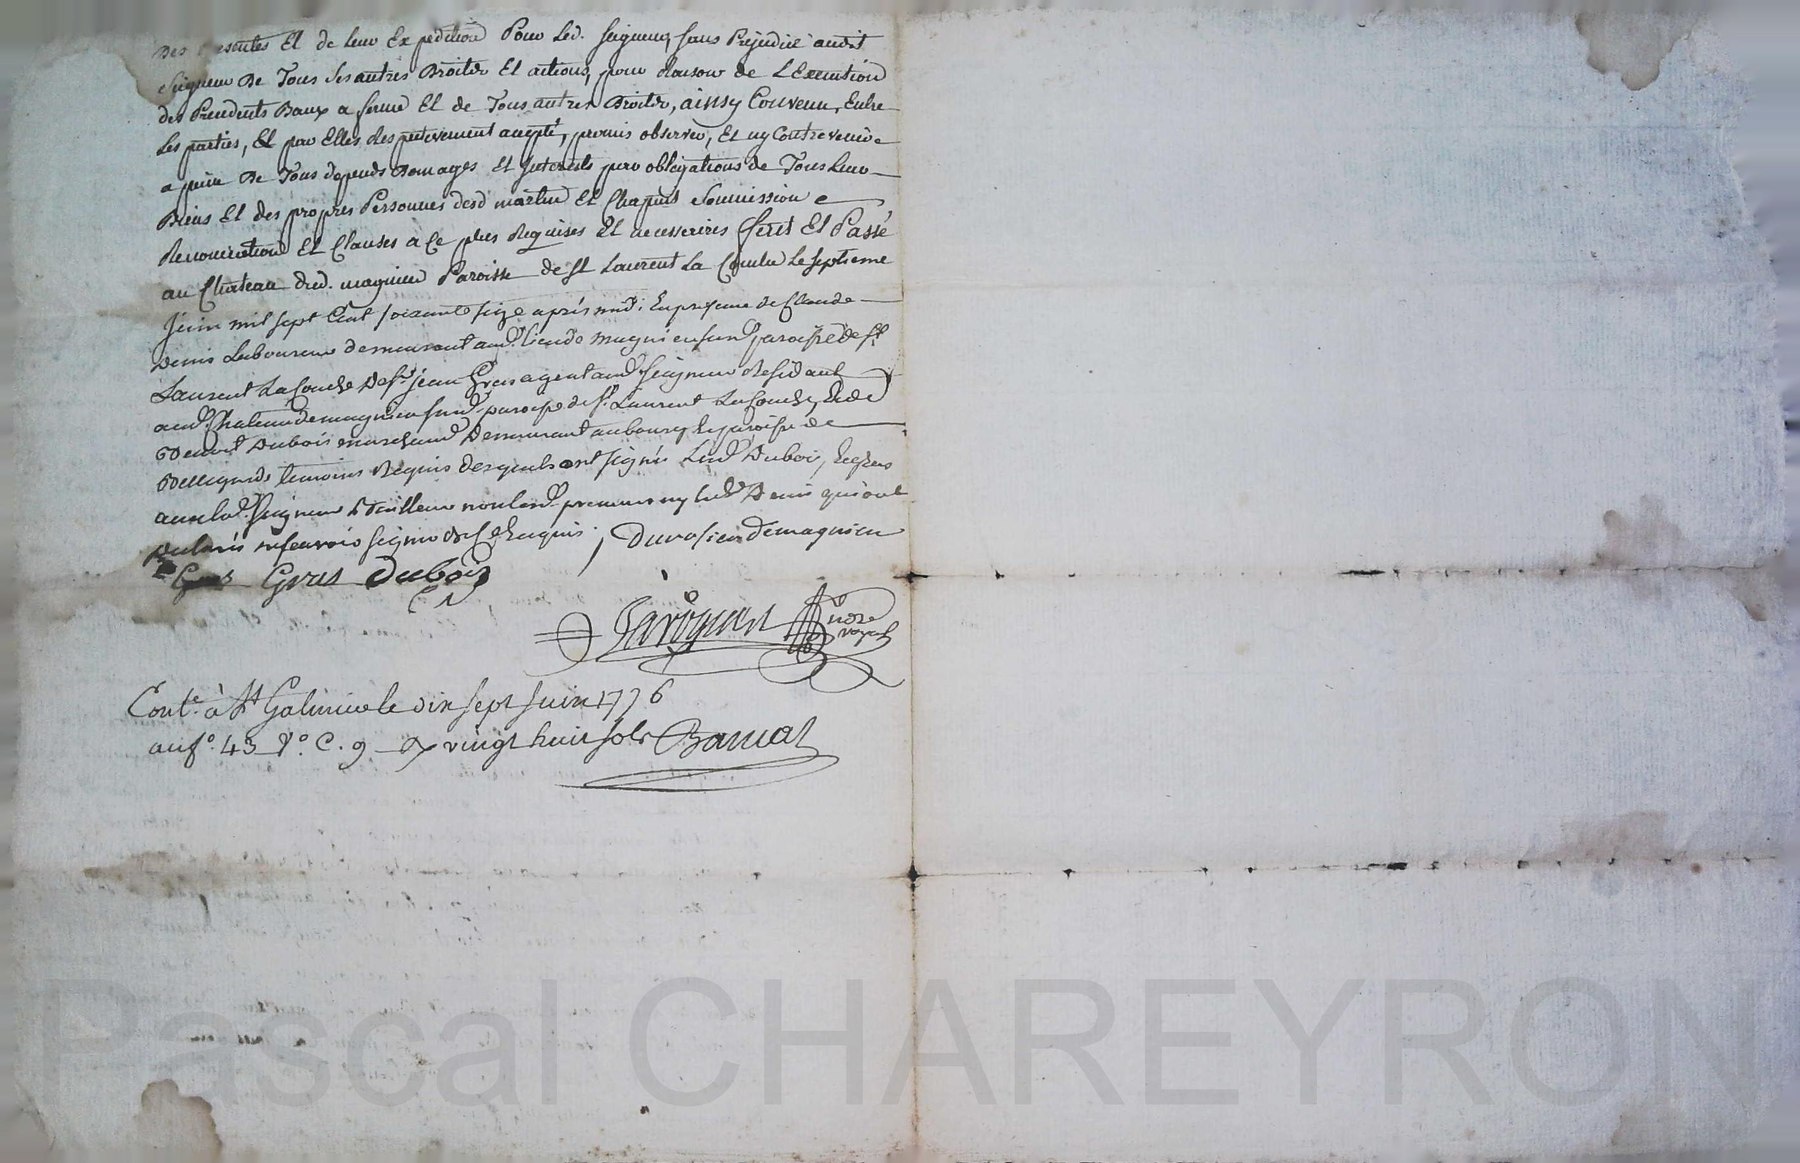 Des presentes Et de leur Expedition Pour led. seigneur, sans Prejudice audit
seigneur De Tous ses autres Droits Et actions, pour raison de L'Execution
des Precedents Baux a ferme Et de Tous autres Droits, ainsy Convenu, Entre
Les parties, Et par Elles respectivement accepté, promis observer, Et ny Contrevenir
a peine De Tous depends Domages Et Interests par obligations de Tous Leurs
Biens Et des propres Personnes desd martin Et Chapuis Soumission
Renonciation Et Clauses a Ce plus Requises Et necessaires fait Et Passé
au Chateau dud. magnieu Paroisse de St Laurent La Conche Le septieme
Juin mil sept Cent soixante seize après midi, En presence de Claude
Denis Laboureur demeurant aud. lieu de magnieu paroisse de St
Laurent La Conche De sr jean Gras agent aud seigneur Residant
aud. Chateau de magnieu susd. paroisse de St Laurent La Conche, Et de
Benoit Dubois marchand Demeurant au bourg Et paroisse de
Bellegarde temoins Requis desquels ont signés Led. Dubois, Et gras
avec led. seigneur Bailleur non lesd. preneurs ny led Denis qui ont
Declarés ne scavoir signer de Ce Enquis, Durosier De magnieu
Gras Dubois
Conté à St Galmier le dix sept Juin 1776
au f° 43 V° C. 9 vingt huit sols Barival
Pascal CHAREYRON